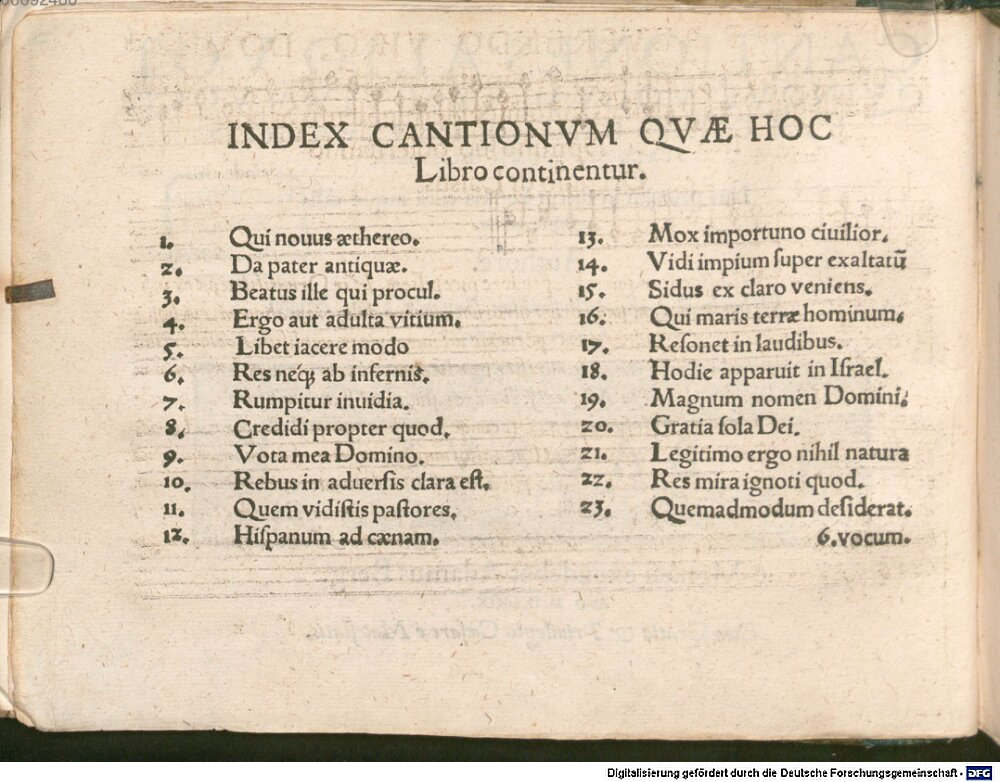 INDEX CANTIONVM QVÆ HOC
Libro continentur.
1. Qui nouus æthereo.
2. Da pater antiquæ.
3. Beatus ille qui procul.
4. Ergo aut adulta vitium.
5. Libet iacere modo
6. Res neq́ꝫ ab infernis.
7. Rumpitur inuidia.
8. Credidi propter quod.
9. Vota mea Domino.
10. Rebus in aduersis clara est.
11. Quem vidistis pastores.
12. Hispanum ad cænam.
13. Mox importuno ciuilior.
14. Vidi impium super exaltatũ
15. Sidus ex claro veniens.
16. Qui maris terræ hominum.
17. Resonet in laudibus.
18. Hodie apparuit in Israel.
19. Magnum nomen Domini.
20. Gratia sola Dei.
21. Legitimo ergo nihil natura
22. Res mira ignoti quod.
23. Quemadmodum desiderat.
6.vocum.
Digitalisierung gefördert durch die Deutsche Forschungsgemeinschaft - DFG